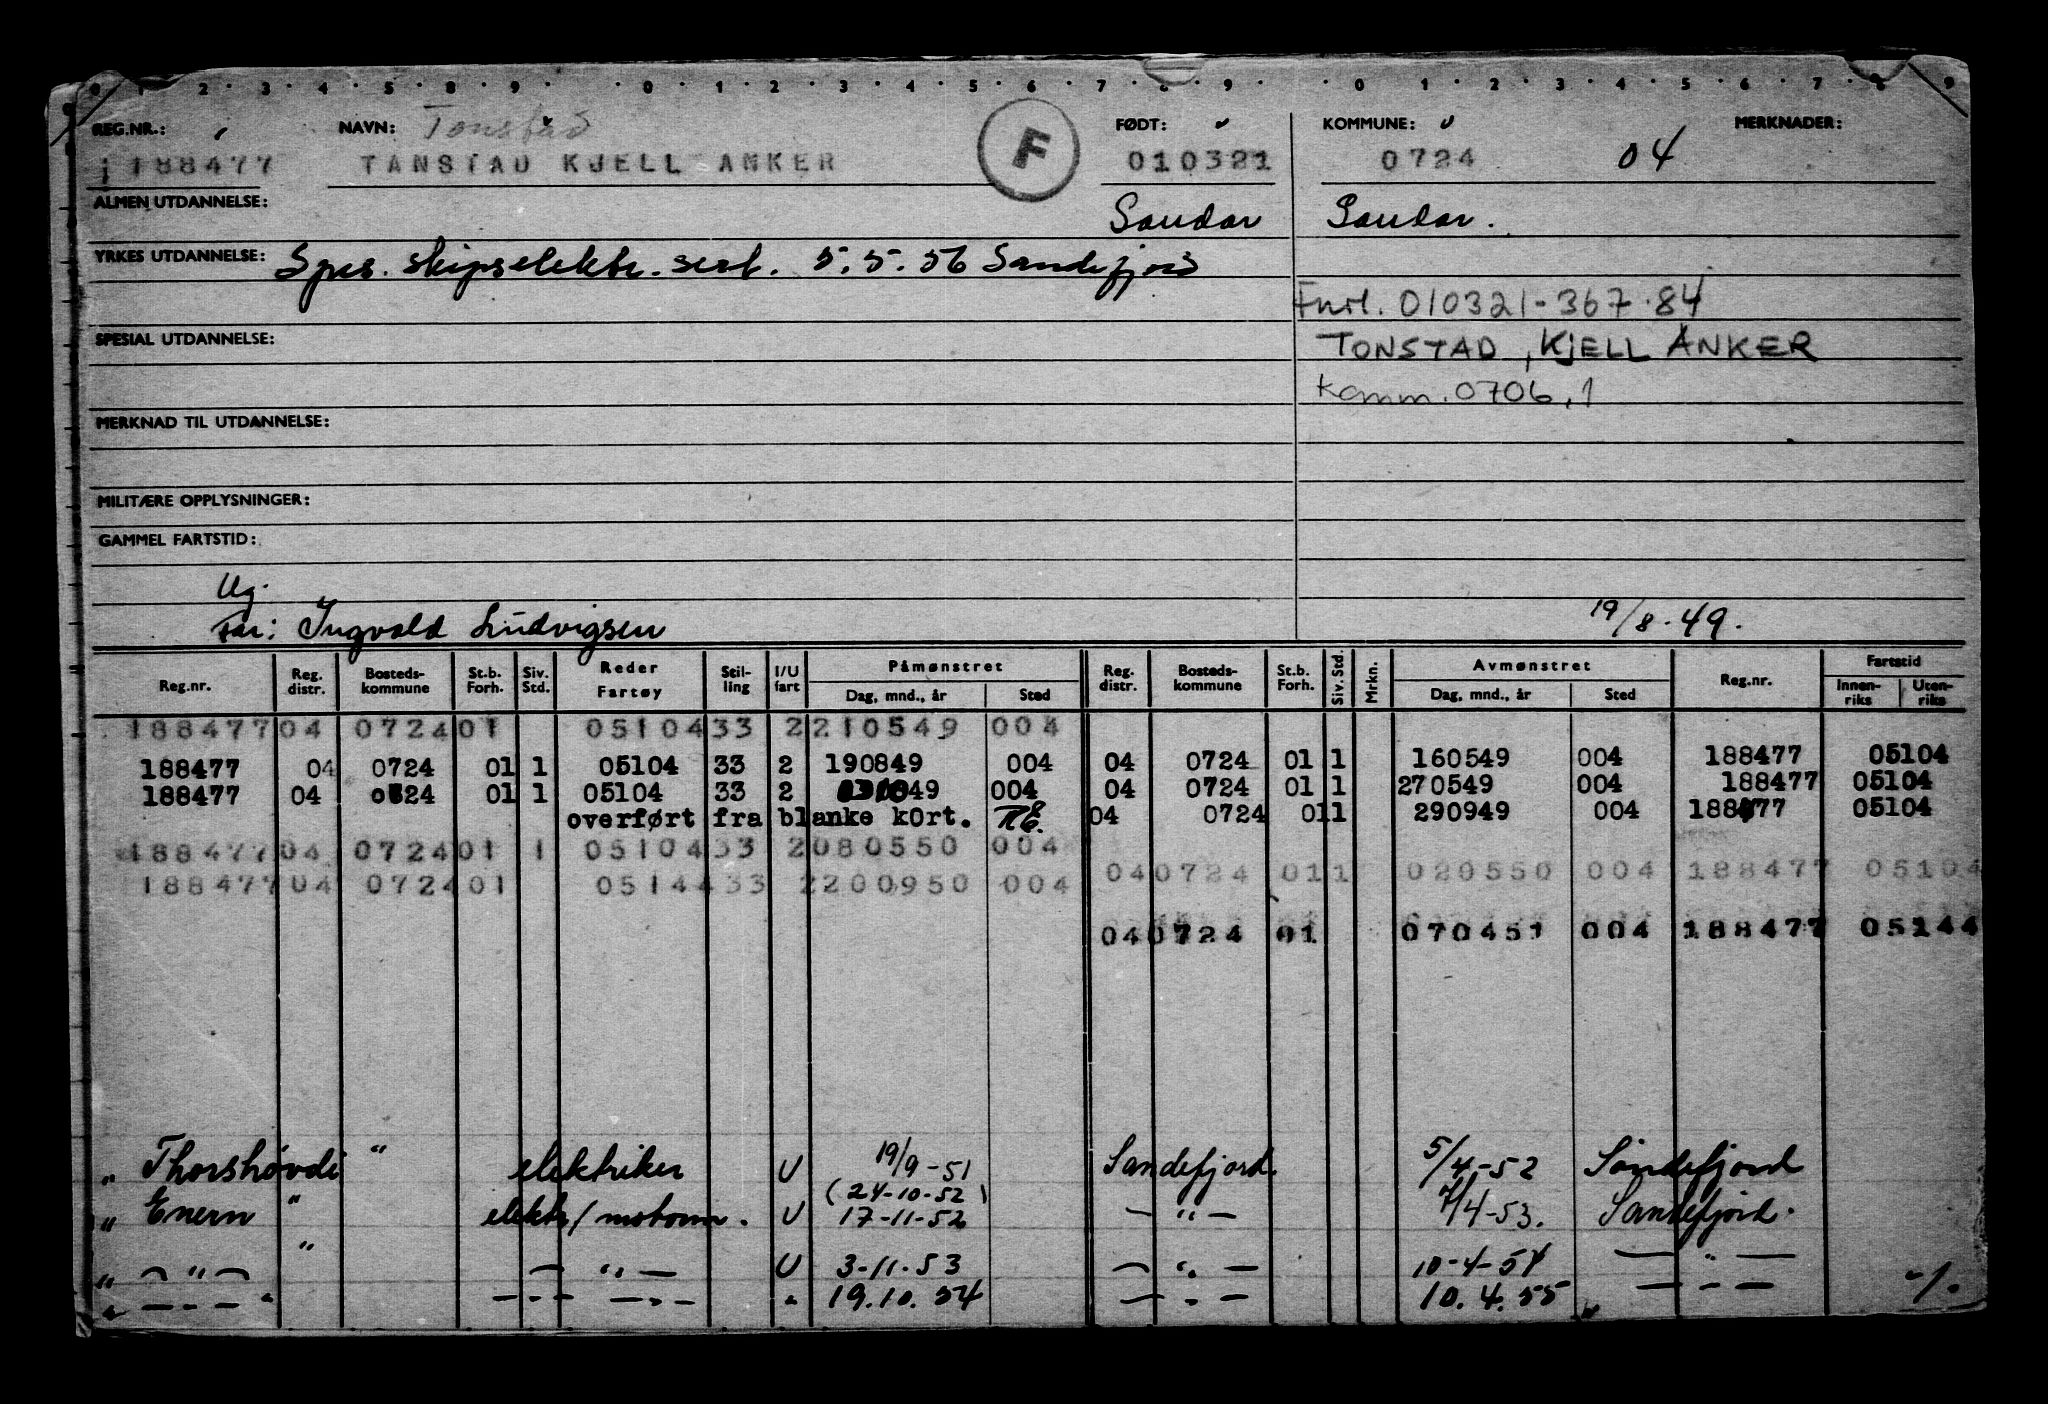 1 2 3 4 5 8 9 0 1 2 3 4 5 6 7 8 9 0 1 2 3 4 5 6 7 8 9
REG.NR.: NAVN: Tonstad FØDT: KOMMUNE: MERKNADER:
188477 TANSTAD KJELL ANKER F 010321 0724 04
ALMEN UTDANNELSE: Sandar Sandar.
YRKES UTDANNELSE: Spes. skipselektr. sert. 5.5.56 Sandefjord
Fnr. 010321-367.84
SPESIAL UTDANNELSE: TONSTAD, KJELL ANKER
Komm. 0706,1
MERKNAD TIL UTDANNELSE:
MILITÆRE OPPLYSNINGER:
GAMMEL FARTSTID:
Ug.
Far: Ingvald Ludvigsen 19/8-49.
Reg.nr. Reg. distr. Bosteds-kommune St.b. Forh. Siv. Std. Reder Fartøy Stil-ling I/U fart Påmønstret Dag, mnd., år Sted Reg. distr. Bosteds-kommune St.b. Forh. Siv. Std. Mrkn. Avmønstret Dag, mnd., år Sted Reg.nr. Fartstid Innen-riks Uten-riks
188477 04 0724 01 05104 33 2 210549 004
188477 04 0724 01 1 05104 33 2 190849 004 04 0724 01 1 160549 004 188477 05104
188477 04 0724 01 1 05104 33 2 031049 004 04 0724 01 1 270549 004 188477 05104
overført fra blanke kort. 04 0724 01 1 290949 004 188477 05104
188477 04 0724 01 1 05104 33 2 080550 004
188477 04 0724 01 05144 33 2 200950 004 04 0724 01 1 020550 004 188477 05104
04 0724 01 070451 004 188477 05144
" Thorshøvdi " elektriker U 19/9-51 Sandefjord. 5/4-52 Sandefjord
(24-10-52)
" Enern " elektr/motorm. U 17-11-52 — " — 7/4-53. Sandefjord.
" — " — " — " — U 3-11-53 — " — 10-4-54 — " —
" — " — " — " — — " — " 19.10.54 — " — 10.4.55 — " — -/.